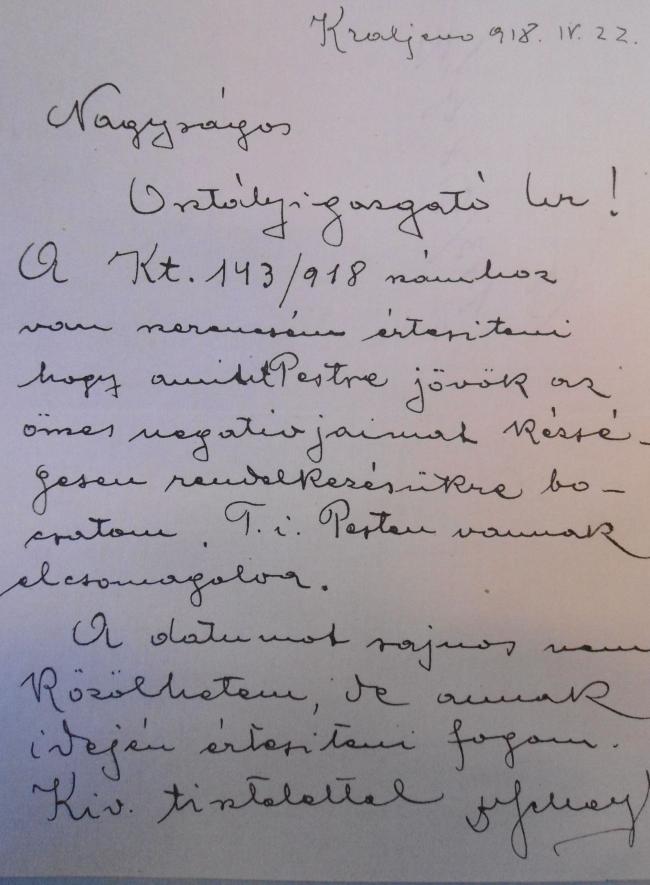 Kraljevo 918. IV. 22.
Nagyságos
Osztályigazgató Ur!
A Kt. 143/918 számhoz
van szerencsém értesiteni
hogy amint Pestre jövök az
ömes negativjaimat készsé-
gesen rendelkezésükre bo-
csatom. T. i. Pesten vannak
elcsomagolva.
A datumot sajnos nem
közölhetem, de annak
idején értesiteni fogom.
Kiv. tisztelettel